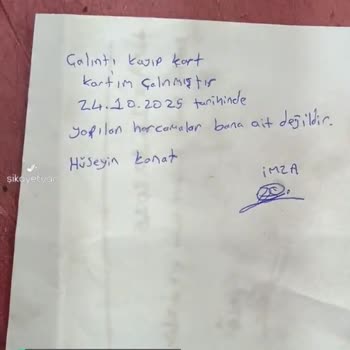 Çalıntı kayıp kart
kartım Çalınmıştır
24.10.2025 tarihinde
yapılan harcamalar bana ait değildir.
Hüseyin konat
İMZA
şikayetvar